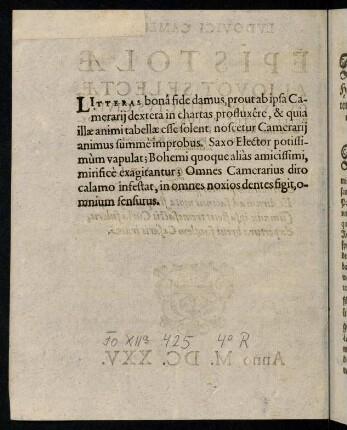 LITTERAS bonâ fide damus, prout ab ipsa Ca-
merarij dextera in chartas profluxêre, & quia
illæ animi tabellæ esse solent, noscetur Camerarij
animus summè improbus. Saxo Elector potissi-
mùm vapulat; Bohemi quoque aliàs amicissimi,
mirificè exagitantur; Omnes Camerarius diro
calamo infestat, in omnes noxios dentes figit, o-
mnium sensurus.
425 4° R